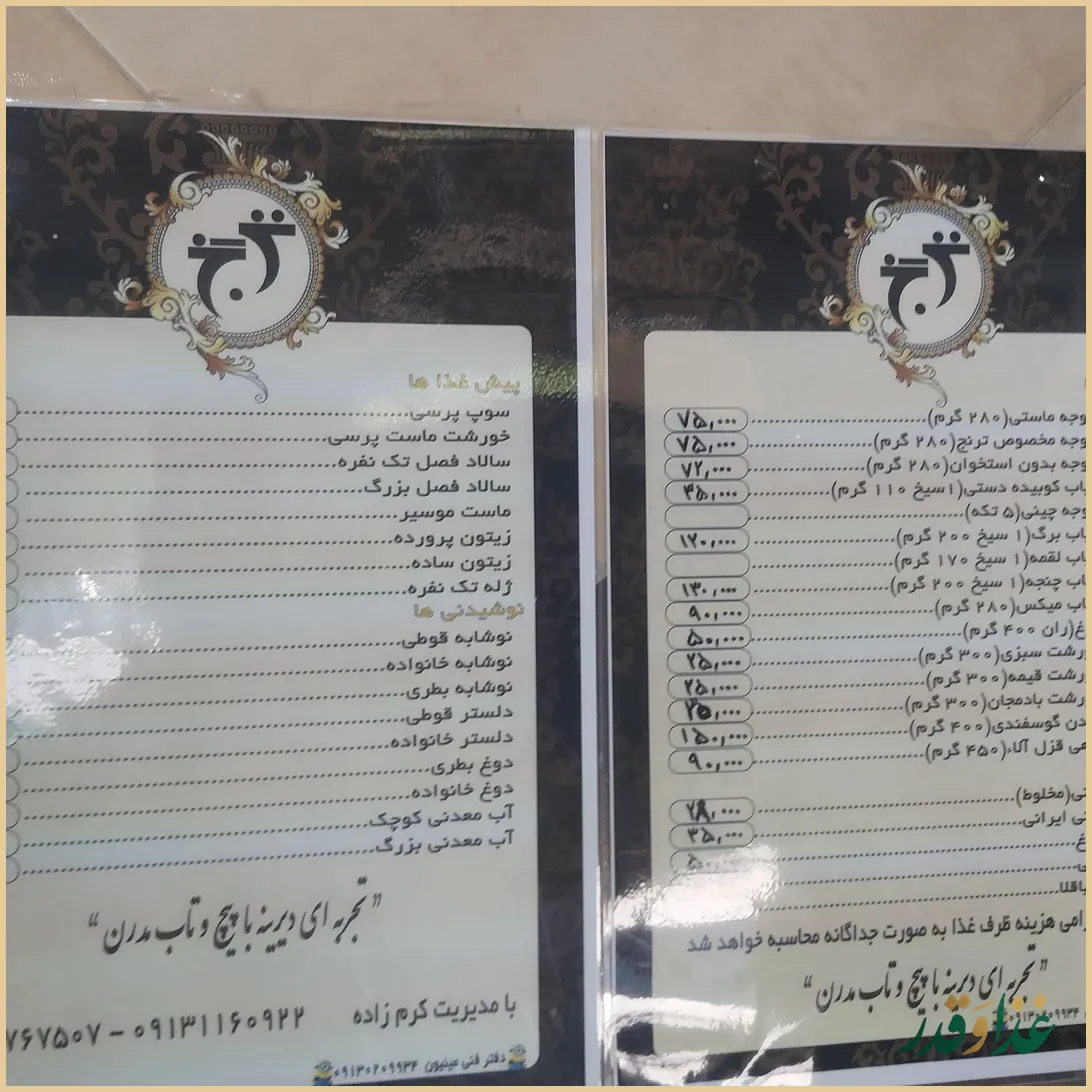 ترنج
پیش غذا ها
سوپ پرسی
خورشت ماست پرسی
سالاد فصل تک نفره
سالاد فصل بزرگ
ماست موسیر
زیتون پرورده
زیتون ساده
ژله تک نفره
نوشیدنی ها
نوشابه قوطی
نوشابه خانواده
نوشابه بطری
دلستر قوطی
دلستر خانواده
دوغ بطری
دوغ خانواده
آب معدنی کوچک
آب معدنی بزرگ
"تجربه ای دیرینه با پیچ و تاب مدرن"
با مدیریت کرم زاده ۰۹۱۳۱۱۶۰۹۲۲ - ۷۶۷۵۰۷
دفتر فنی مینیون ۰۹۱۳۰۲۰۹۹۳۴
ترنج
وجه ماستی(۲۸۰ گرم) ۷۵,۰۰۰
وجه مخصوص ترنج(۲۸۰ گرم) ۷۵,۰۰۰
وجه بدون استخوان(۲۸۰ گرم) ۷۲,۰۰۰
باب کوبیده دستی(۱سیخ ۱۱۰ گرم) ۳۵,۰۰۰
وجه چینی(۵ تکه)
باب برگ(۱ سیخ ۲۰۰ گرم) ۱۲۰,۰۰۰
باب لقمه(۱ سیخ ۱۷۰ گرم)
باب چنجه(۱ سیخ ۲۰۰ گرم) ۱۳۰,۰۰۰
اب میکس(۲۸۰ گرم) ۹۰,۰۰۰
غ(ران ۴۰۰ گرم) ۵۰,۰۰۰
رشت سبزی(۳۰۰ گرم) ۲۵,۰۰۰
رشت قیمه(۳۰۰ گرم) ۲۵,۰۰۰
رشت بادمجان(۳۰۰ گرم) ۲۵,۰۰۰
دن گوسفندی(۴۰۰ گرم) ۱۵۰,۰۰۰
هی قزل آلا(۴۵۰ گرم) ۹۰,۰۰۰
نی(مخلوط) ۲۸,۰۰۰
نی ایرانی ۳۵,۰۰۰
غ
باقلا
رامی هزینه ظرف غذا به صورت جداگانه محاسبه خواهد شد
"تجربه ای دیرینه با پیچ و تاب مدرن"
۰۹۱۳۰۲۰۹۹۳۴
غذا و قدر